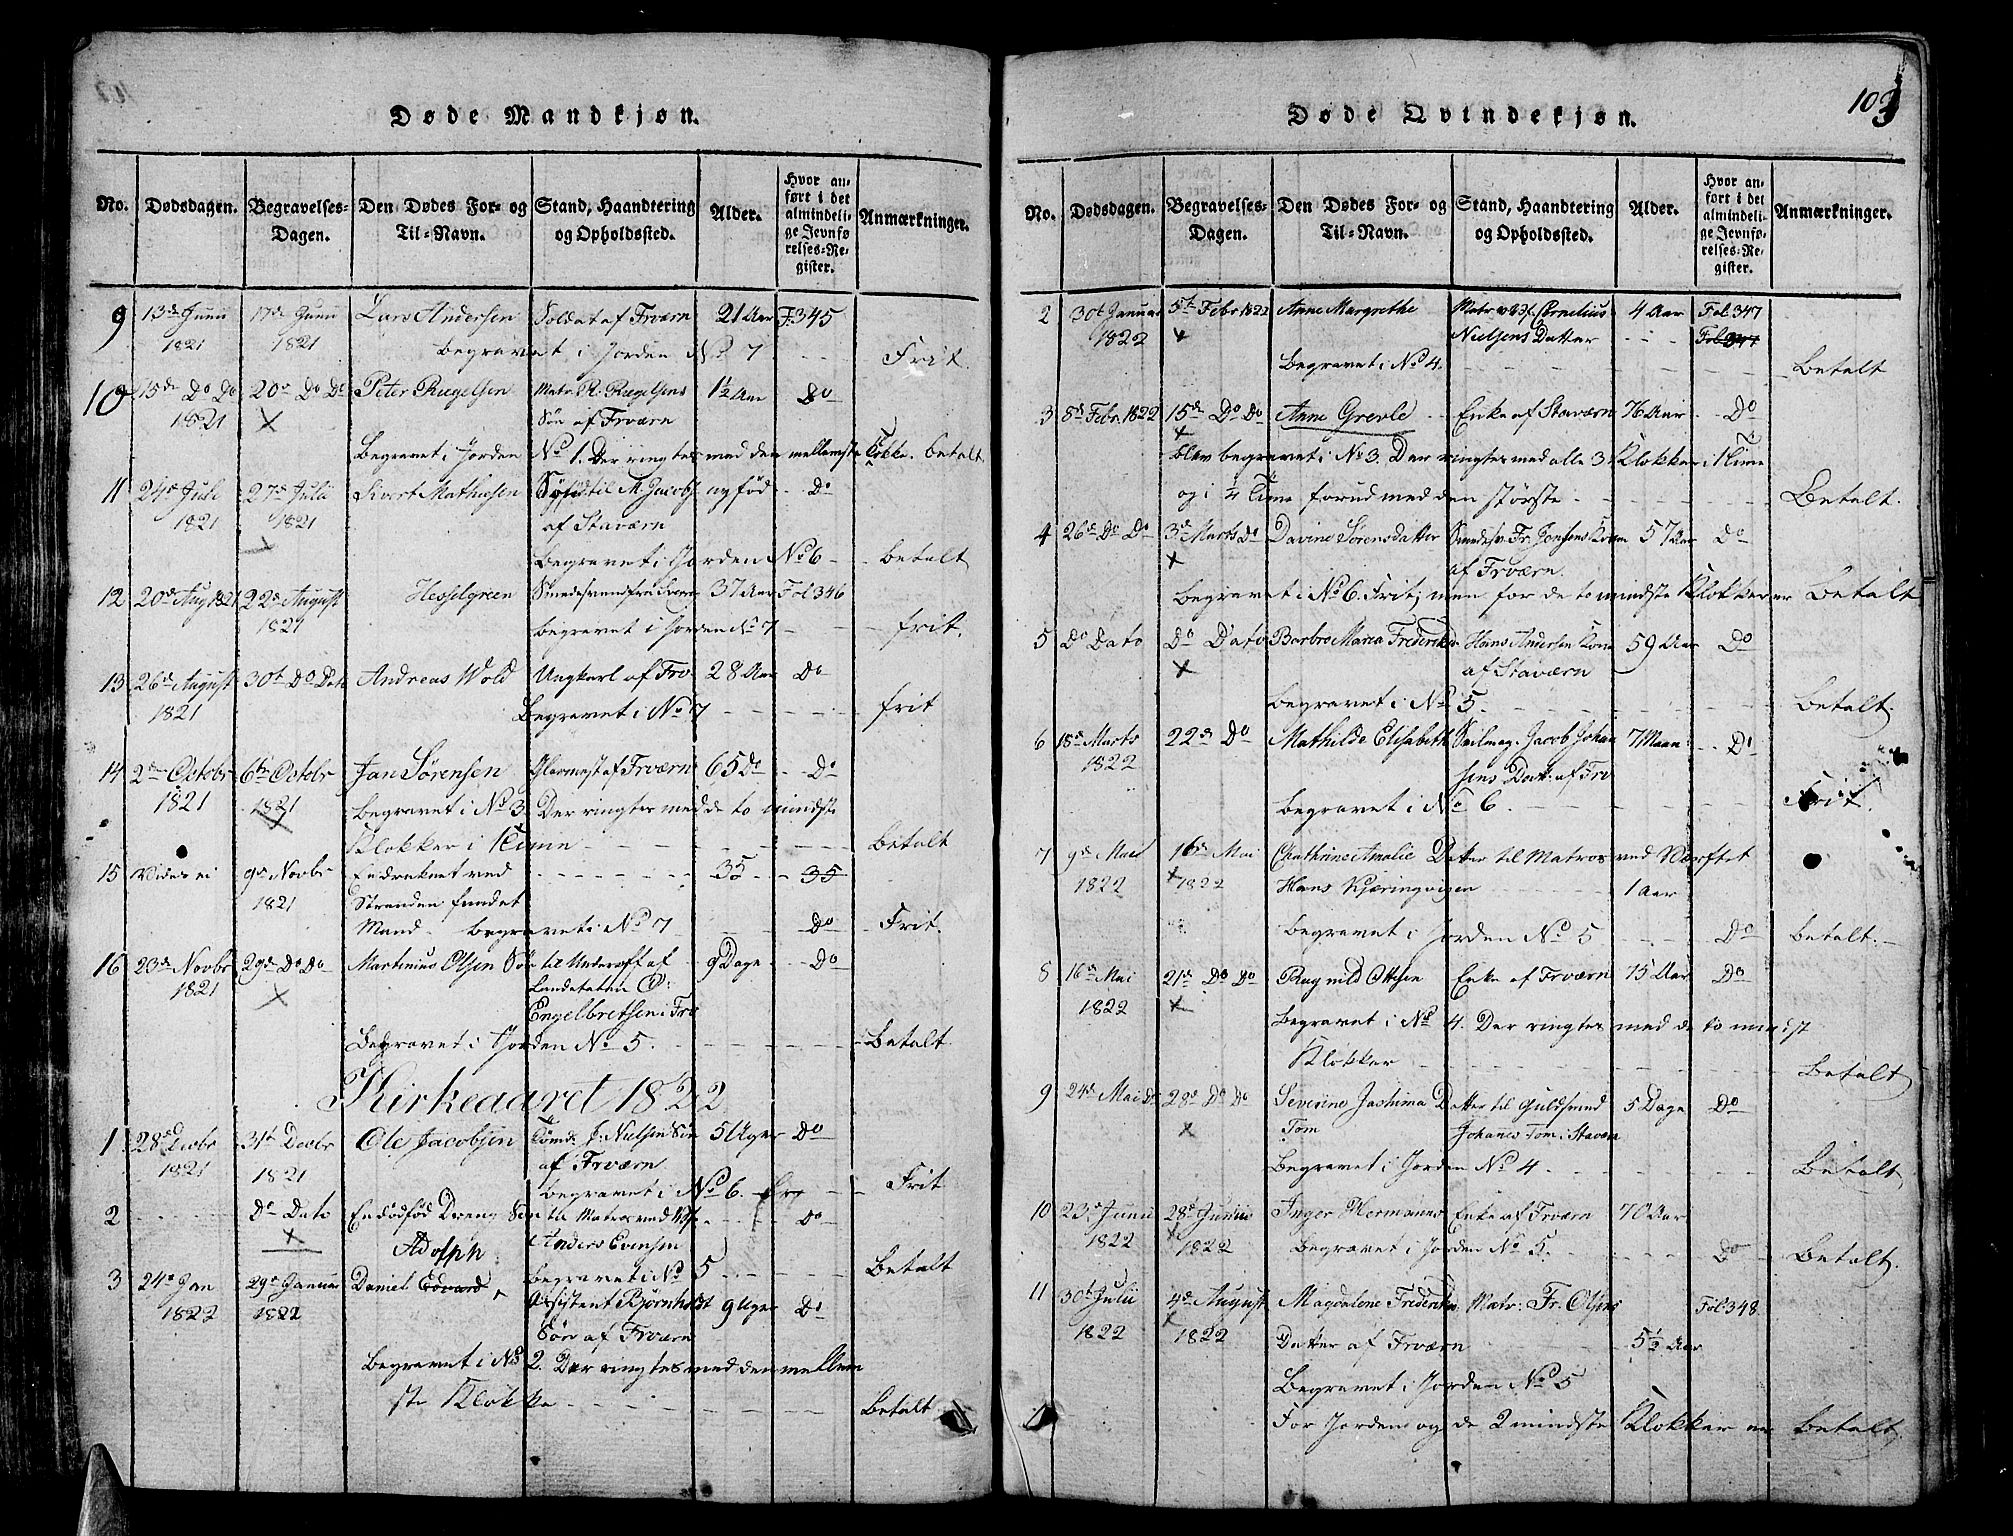 Døde Mandkjøn.
No. Dødsdagen. Begravelses-Dagen. Den Dødes For- og Til-Navn. Stand, Haandtering og Opholdssted. Alder. Hvor anført i det almindelige Jevnførelses-Register. Anmærkninger.
9 13de Junii 17de Junii Lars Andersen Soldat af Frværn 21 Aar F. 345
1821 1821 begravet i Jorden No 7 Frit.
10 15de Do Do 20de Do Do Peter Ruegelsen Matr. R. Ruegelsens 1½ Aar Do
1821 Søn af Frværn
Begravet i Jorden No 1. Der ringtes med den mellemste Klokke. betalt
11 24de Juli 27de Julii Sivert Mathiesen Søn til M. Jacobs nyfød Do
1821 1821 af Staværn
begravet i Jorden No 6 betalt
12 20de Aug 1821 22de August Hesselgreen Smedesvend fra 37 Aar Fol 346
1821 begravet i Jorden No 7 frit.
13 26de August 30te Do Dato Andreas Wold Ungkarl af Frv 28 Aar Do
1821 Begravet i No 7 frit
14 2den Octobr 6te Octobr Jan Sørensen Glarmest af Frværn 65 Do Do
1821 1821 begravet i No 3 Der ringtes med de to mindste
Klokker i 1 Time betalt
15 Vides ei 9de Novbr En druknet ved 35 35
1821 Stranden fundet
Mand begravet i No 7 Do Frit.
16 23de Novbr 29de Do Do Martinius Olsen Søn til Underoff af 9 Dage Do
1821 Landetaten O:
Engelbretsen i Frv
Begravet i Jorden No 5. Betalt
Kirkeaaret 1822
1 28de Decbr 31te Decbr Ole Jacobsen Tømd. J. Nielsen Søn 5 Uger Do
1821 1821 af Frværn
begravet i No 6. Frit
2 Do Dato En dødfød Dreng Søn til Matros ved Do
Adolph Anders Evensen
begravet i No 5 Betalt
3 24de Jan 29de Januar Daniel Edvard Assistent Bjørnholdt 9 Uger Do
1822 1822 Søn af Frværn
Begravet i No 2. Der ringtes med den mellem
ste Klokke betalt
Døde Qvindekjøn.
103
No. Dødsdagen. Begravelses-Dagen. Den Dødes For- og Til-Navn. Stand, Haandtering og Opholdssted. Alder. Hvor anført i det almindelige Jevnførelses-Register. Anmærkninger.
2 30te Januar 5te Febr 1822 Anne Margrethe Matr. Cornelius 4 Aar Fol 347
1822 Nielsens Datter Fol 347
Begravet i No 4. Betalt
3 8de Febr. 1822 15de Do Do Anne Grevle Enke af Staværn 76 Aar Do
blev begravet i No 3. Der ringtes med alle 3 Klokker i 1 Time
og i ¼ Time forud med den største Betalt.
4 26de Do Do 3de Marts Do Davine Sørensdatter Smedesv. Fr. Jensens Kone 57 Aar Do
af Frværn.
begravet i No 6. Frit; men for de to mindste Klokker er Betalt
5 Do Dato Do Dato Barbro Maria Frederiks Hans Andersen Kone 59 Aar Do
af Staværn
begravet i No 5. Betalt.
6 18de Marts 22de Do Mathilde Elisabeth Seilmag. Jacob Johan 7 Maan Do
1822 sens Dott: af Frv
begravet i No 6. Frit.
7 9de Mai 16de Mai Chathrine Amalie Datter til Matros ved Værftet
1822 1822 Hans Kjæringvigen 1 Aar
Begravet i Jorden No 5 Do betalt.
8 16de Mai 21de Do Do Rugnild Ottsen Enke af Frværn 75 Aar Do
1822 Begravet i No 4. Der ringtes med de to mindst
Klokker Betalt
9 24de Mai Do 28de Do Do Severine Jachima Datter til Guldsmed 5 Dage Do
Tom Johanes Tom i Staværn
Begravet i Jorden No 4 Betalt
10 23de Junii 28de Junii Inger Hermannes Enke af Frværn 70 Aar
1822 1822 Begravet i Jorden No 5. Do Betalt.
11 30te Julii 4de August Magdalene Frederikke Matr: Fr. Olsens Fol 348.
1822 1822 Datter af Frværn 5½ Aar
Begravet i Jorden No 5
For Jorden og de 2 mindste Klokker er Betalt